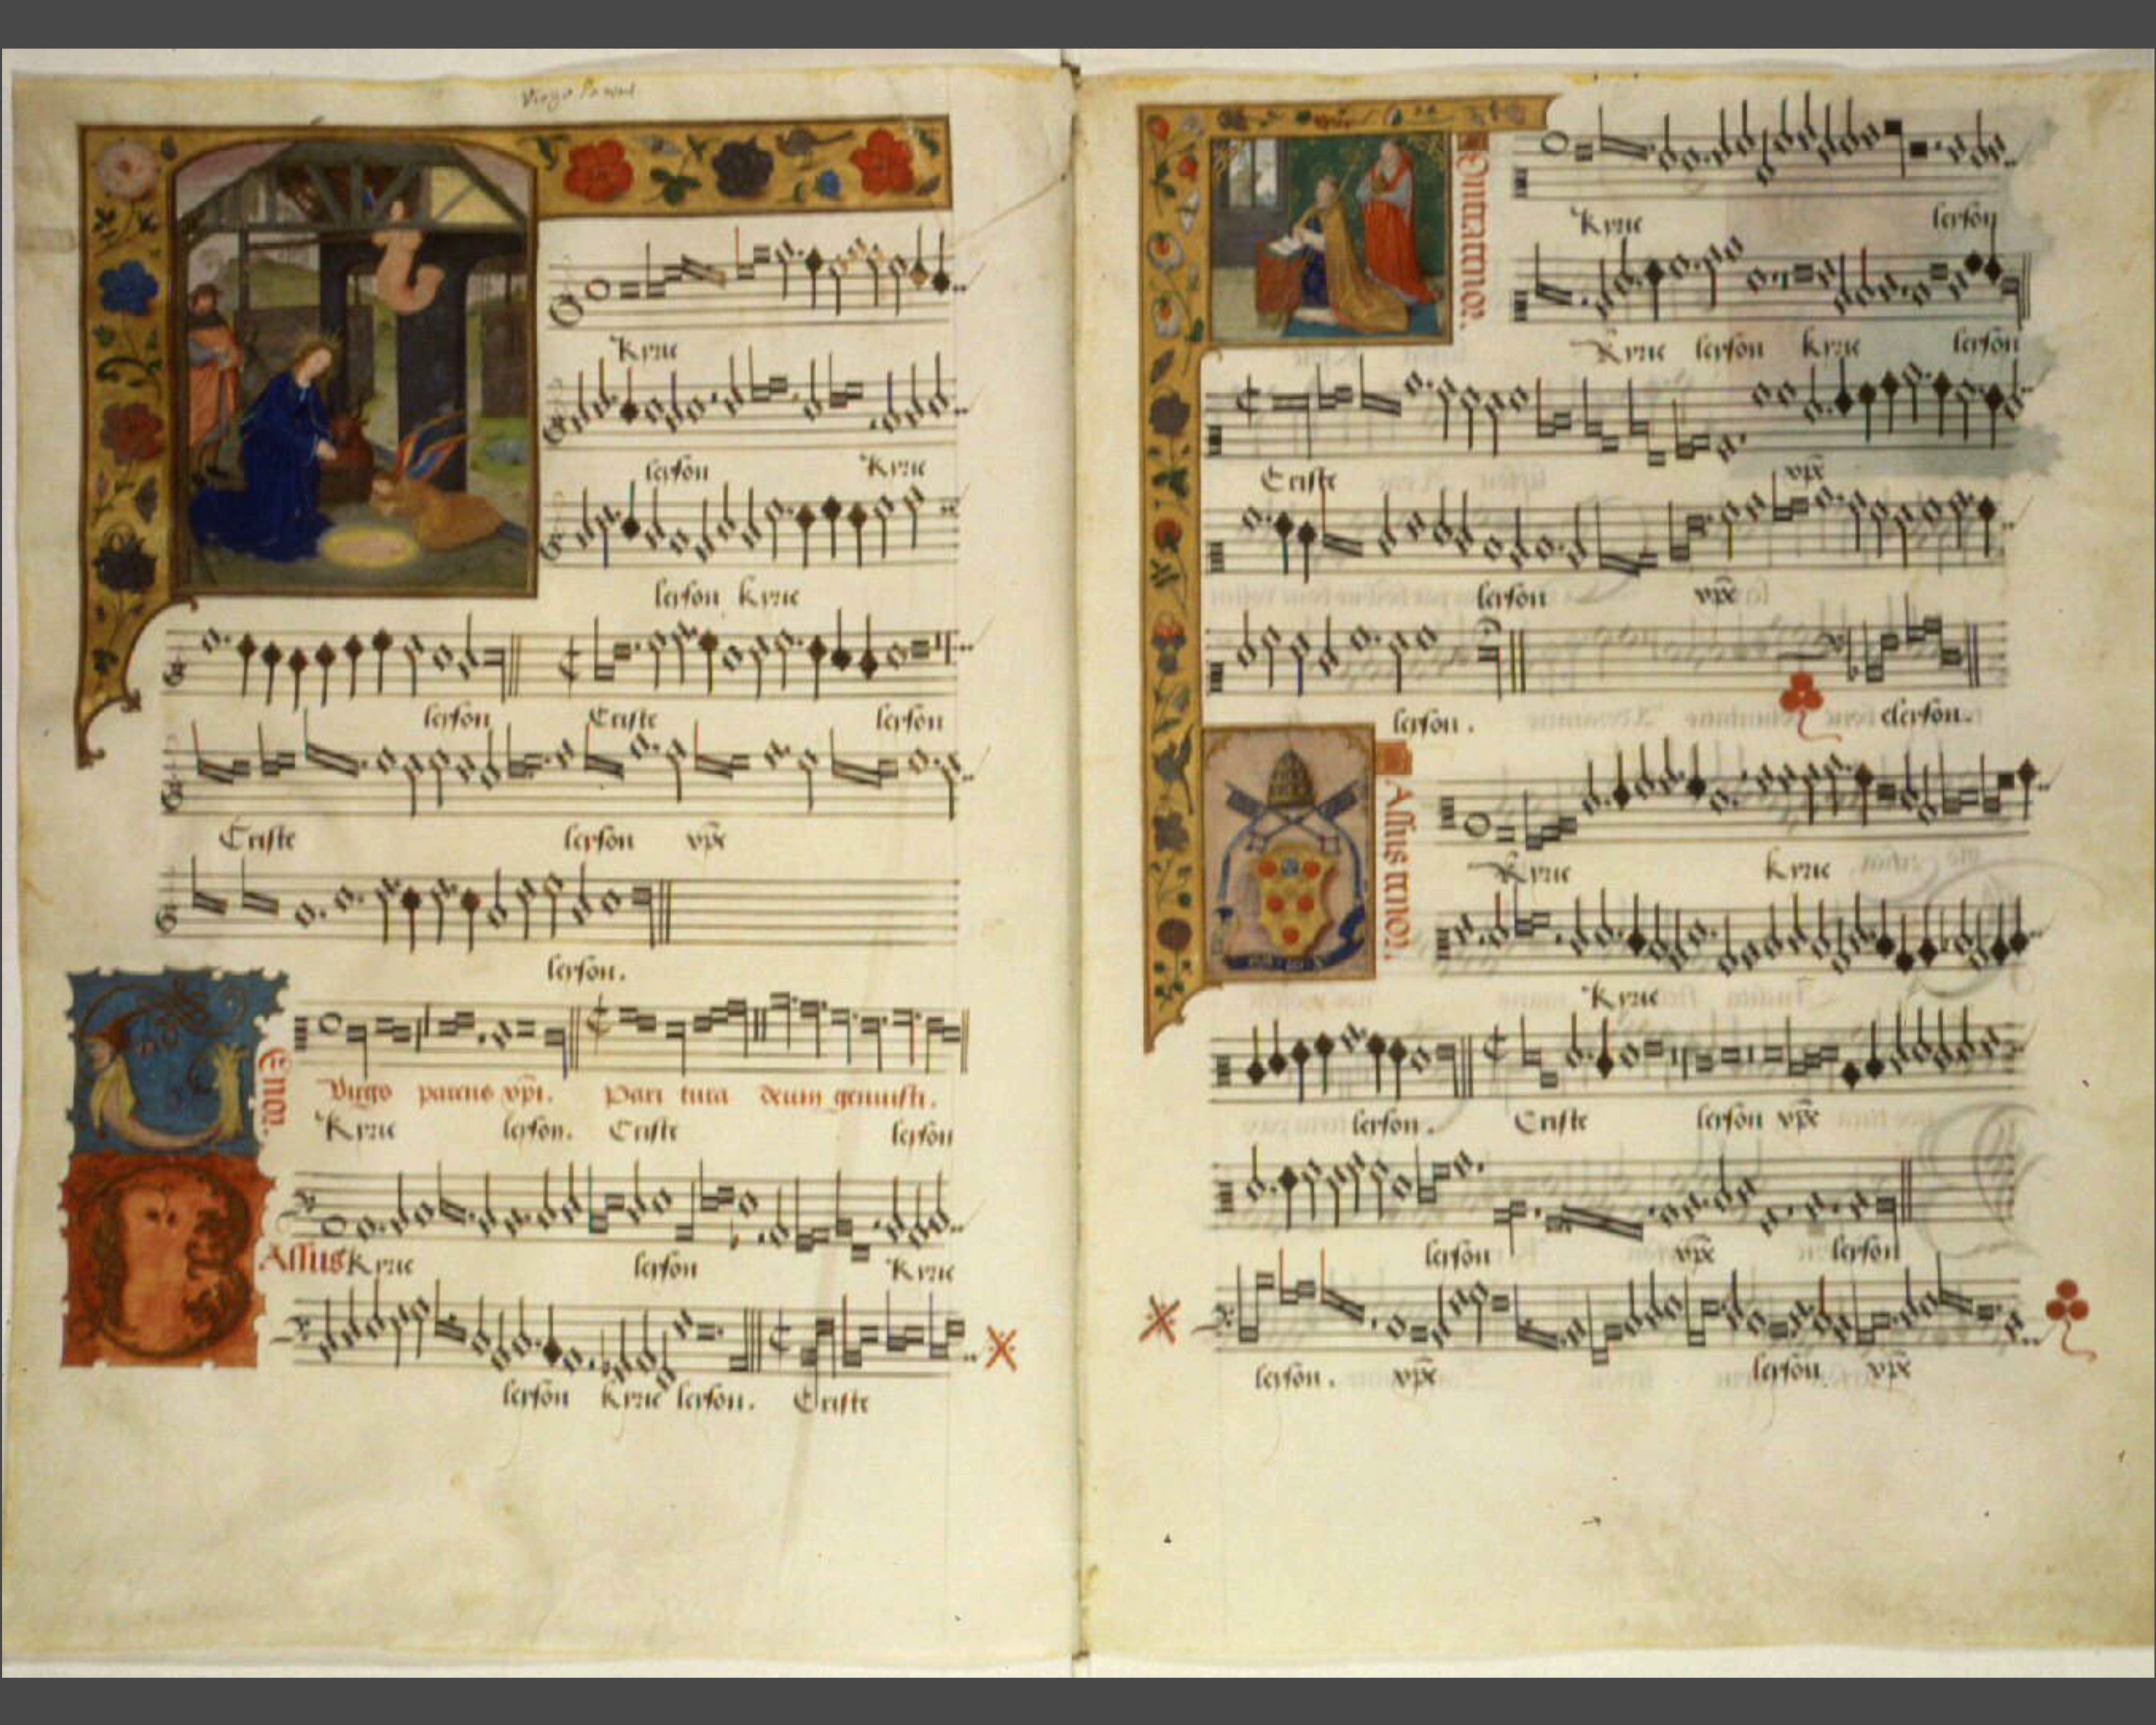 Virgo Parens
Kyrie
leyson Kyrie
leyson kyrie
leyson Criste leyson
Criste leyson xpe
leyson.
Enor.
Virgo parens xpi. Pari tura deum genuisti.
Kyrie leyson. Criste leyson
Assus Kyrie leyson Kyrie
leyson kyrie leyson. Criste
Kyrie leyson
Kyrie leyson kyrie leyson
Criste xpe
leyson xpe
leyson. eleyson.
Assus tenor.
Kyrie kyrie
Kyrie
leyson. Criste leyson xpe
leyson xpe leyson
leyson. xpe leyson xpe